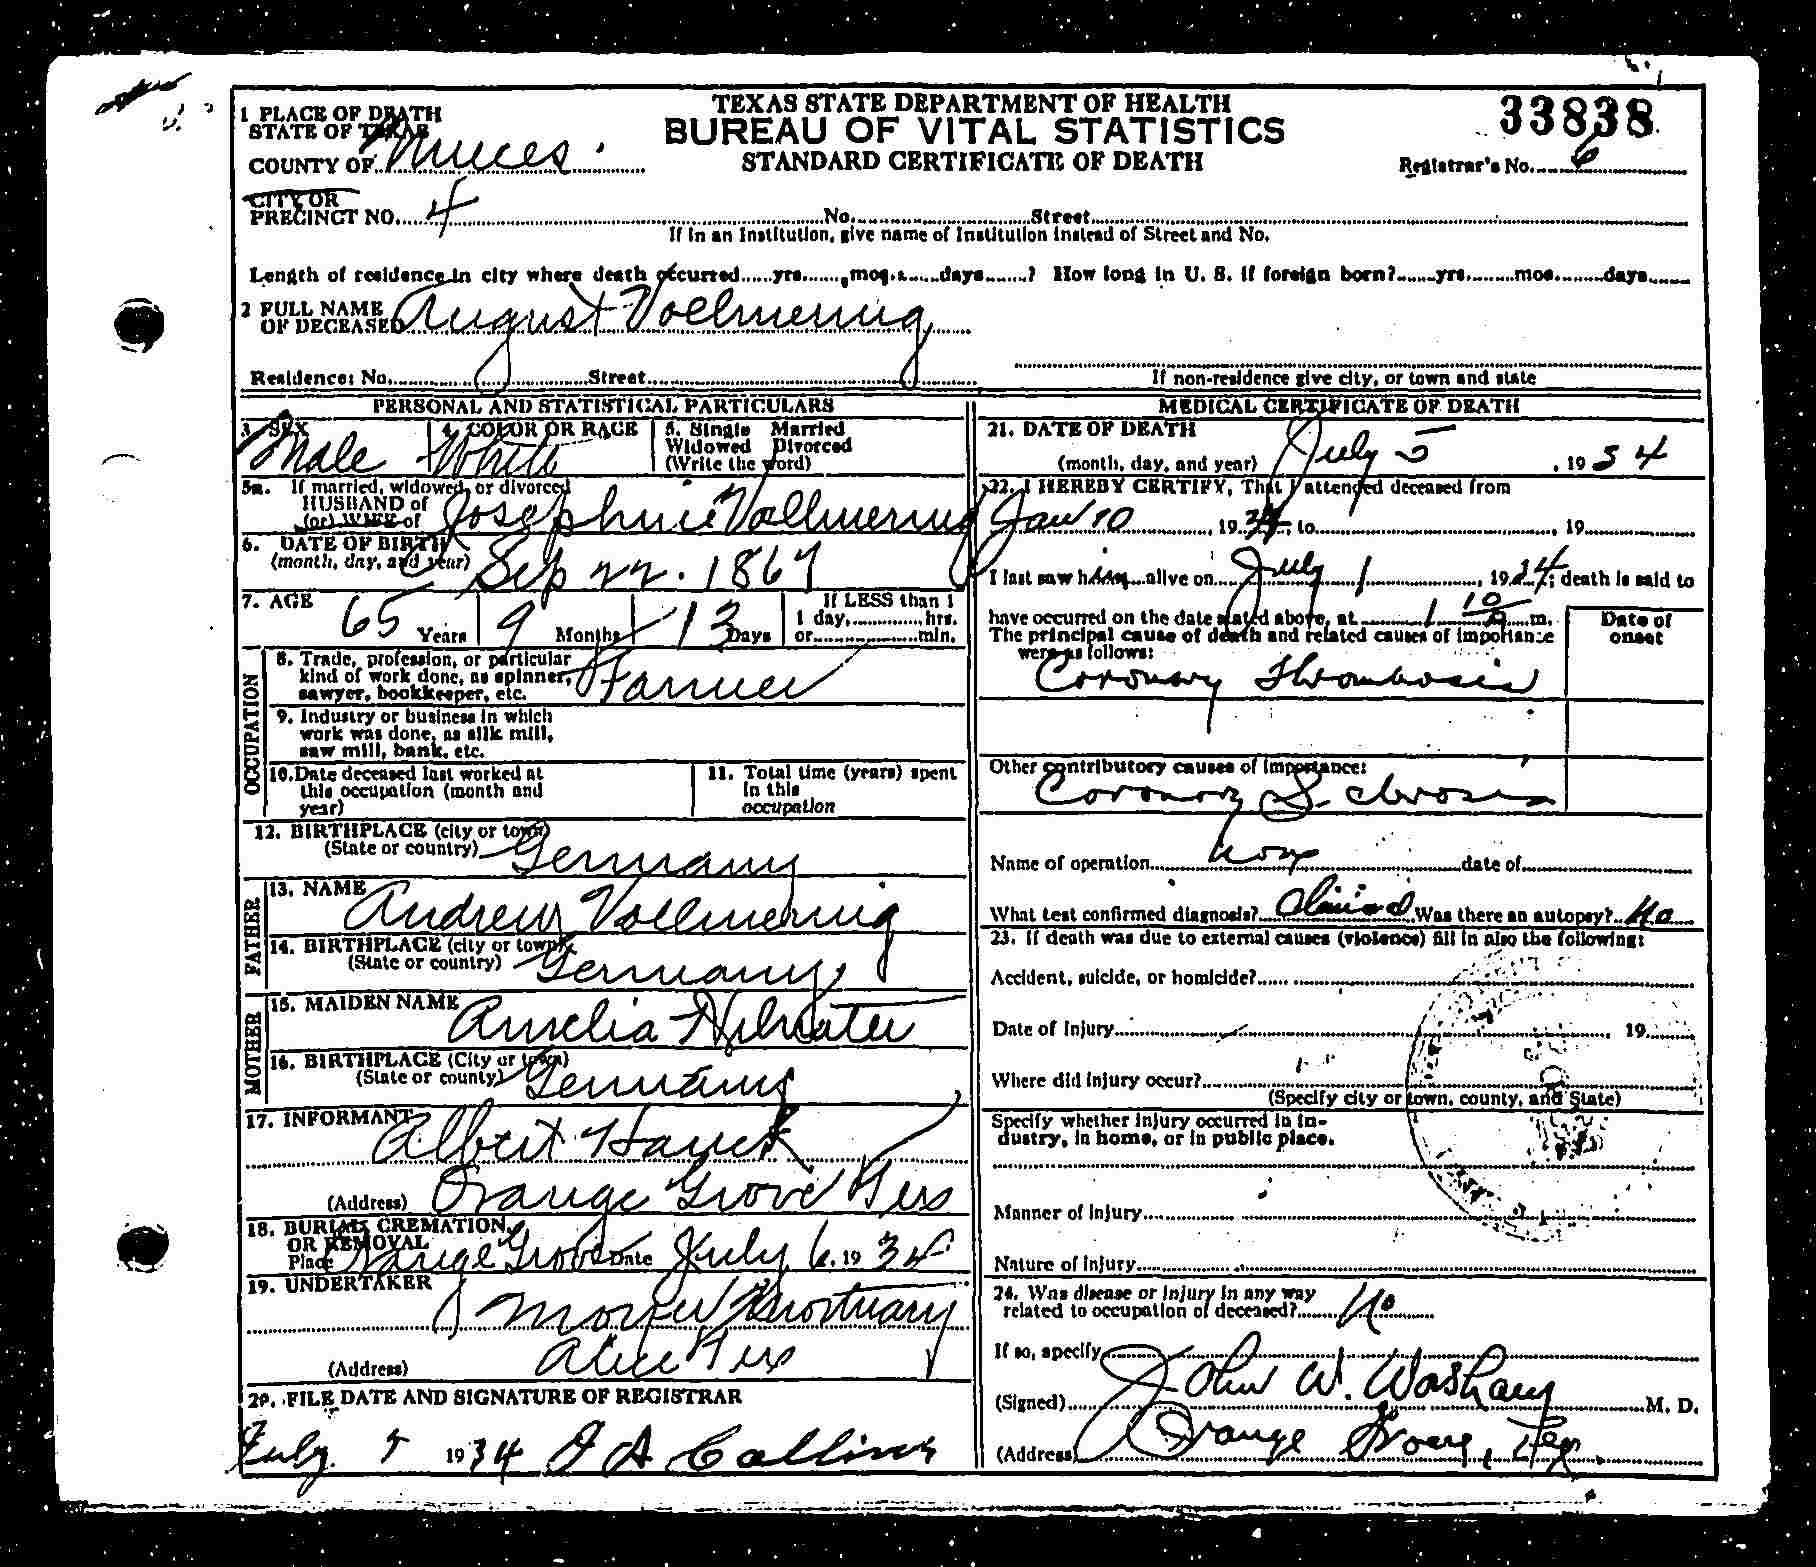 TEXAS STATE DEPARTMENT OF HEALTH
BUREAU OF VITAL STATISTICS
STANDARD CERTIFICATE OF DEATH
33838
Registrar's No. 6
1 PLACE OF DEATH
STATE OF TEXAS
COUNTY OF Nueces
CITY OR
PRECINCT NO. 4 No. Street
If in an Institution, give name of Institution instead of Street and No.
Length of residence in city where death occurred yrs. mos. days ? How long in U. S. if foreign born? yrs. mos. days
2 FULL NAME
OF DECEASED August Vollmering
Residence: No. Street
If non-residence give city, or town and state
PERSONAL AND STATISTICAL PARTICULARS
3. SEX Male
4. COLOR OR RACE White
5. Single Married
Widowed Divorced
(Write the word)
5a. If married, widowed, or divorced
HUSBAND of
(or) WIFE of Josephine Vollmering
6. DATE OF BIRTH
(month, day, and year) Sep 22. 1867
7. AGE 65 Years 9 Months 13 Days
If LESS than 1
1 day, hrs.
or min.
OCCUPATION
8. Trade, profession, or particular
kind of work done, as spinner,
sawyer, bookkeeper, etc. Farmer
9. Industry or business in which
work was done, as silk mill,
saw mill, bank, etc.
10. Date deceased last worked at
this occupation (month and
year)
11. Total time (years) spent
in this
occupation
12. BIRTHPLACE (city or town)
(State or country) Germany
FATHER
13. NAME Andrew Vollmering
14. BIRTHPLACE (city or town)
(State or country) Germany
MOTHER
15. MAIDEN NAME Amelia
16. BIRTHPLACE (City or town)
(State or county) Germany
17. INFORMANT Albert Hauck
(Address) Orange Grove Tex
18. BURIAL, CREMATION,
OR REMOVAL
Place Orange Grove Date July 6, 1934
19. UNDERTAKER
Mortuary
(Address) Alice Tex
20. FILE DATE AND SIGNATURE OF REGISTRAR
July 1934
MEDICAL CERTIFICATE OF DEATH
21. DATE OF DEATH
(month, day, and year) July 5, 1934
22. I HEREBY CERTIFY, That I attended deceased from
Jan 10, 1934, to , 19
I last saw him alive on July 1, 1934; death is said to
have occurred on the date stated above, at 1 10 m.
The principal cause of death and related causes of importance
were as follows:
Date of
onset
Coronary Thrombosis
Other contributory causes of importance:
Coronary Sclerosis
Name of operation none date of
What test confirmed diagnosis? Clinical Was there an autopsy? No
23. If death was due to external causes (violence) fill in also the following:
Accident, suicide, or homicide?
Date of injury , 19
Where did injury occur?
(Specify city or town, county, and State)
Specify whether injury occurred in in-
dustry, in home, or in public place.
Manner of injury
Nature of injury
24. Was disease or injury in any way
related to occupation of deceased? No
If so, specify
(Signed) John W. M. D.
(Address) Orange Grove, Tex.